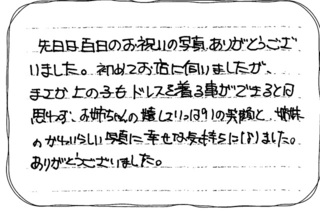 先日は百日のお祝いの写真、ありがとうござ
いました。初めてお店に伺いましたが、
まさか上の子もドレスを着る事ができるとは
思わず、お姉ちゃんの嬉しさいっぱいの笑顔と、姉妹
のかわいらしい写真に幸せな気持ちになりました。
ありがとうございました。